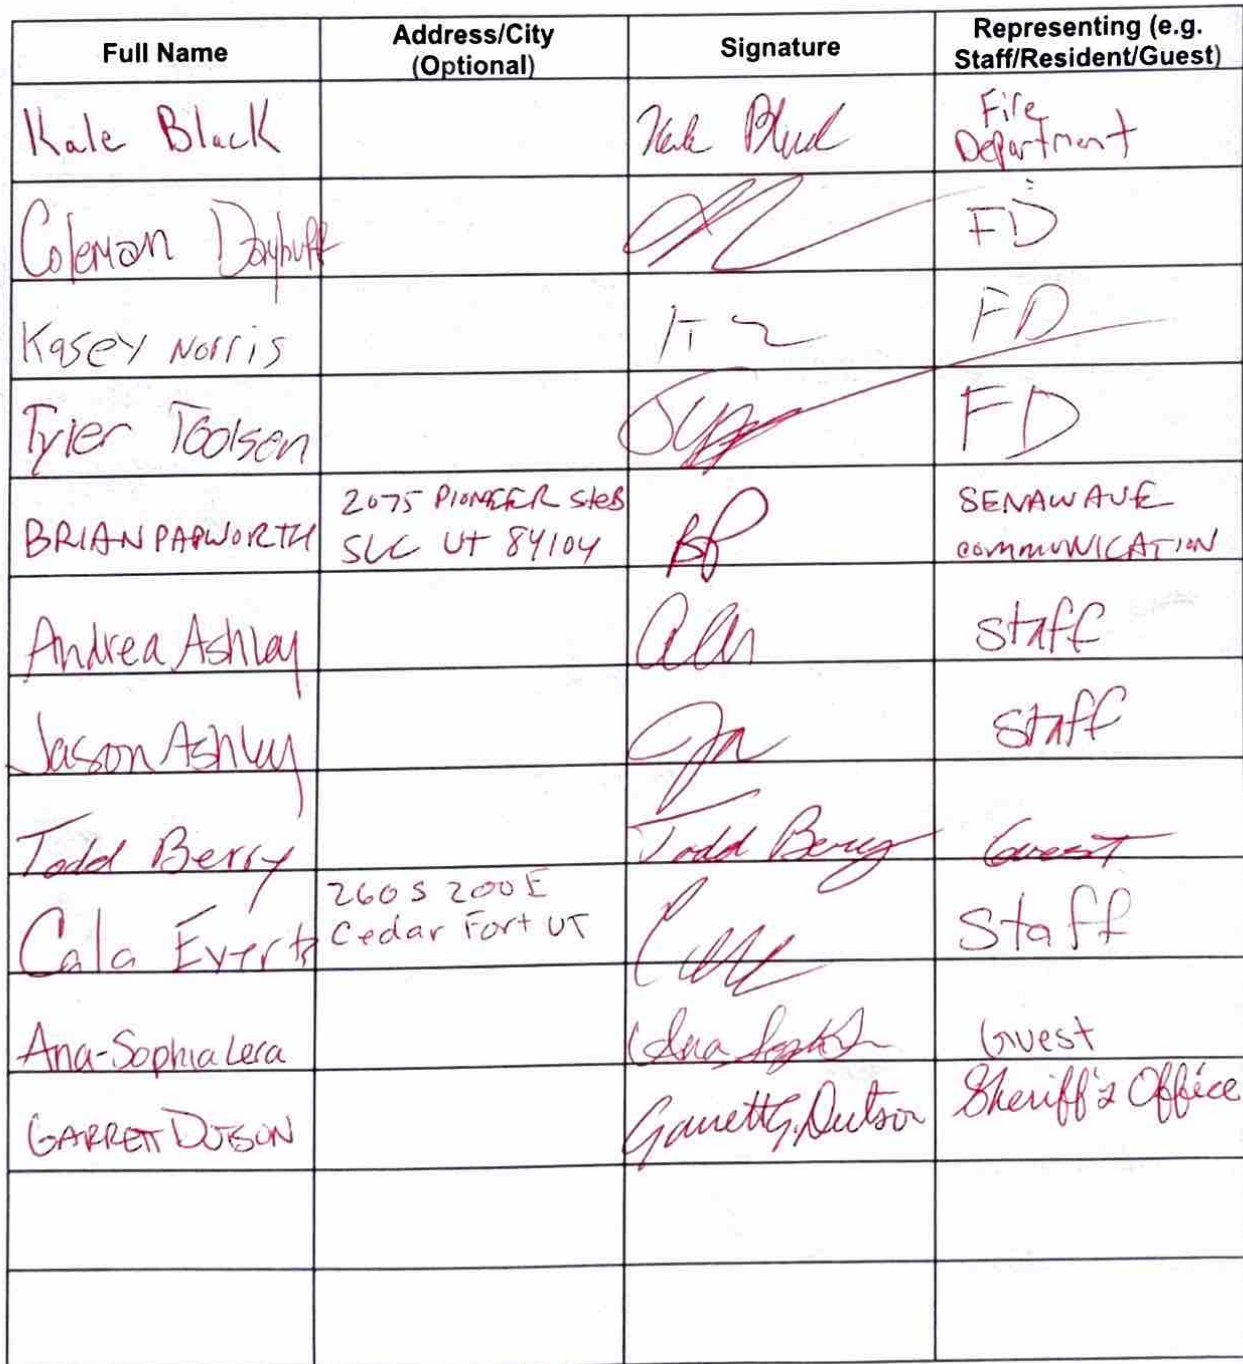 Full Name Address/City (Optional) Signature Representing (e.g. Staff/Resident/Guest)
Kale Black Kale Black File Department
Coleman FD
Kasey Norris FD
Tyler Toolsen FD
BRIAN PAPWORTH 2075 PIONEER SteB SLC UT 84104 BP SENAWAVE COMMUNICATION
Andrea Ashley Staff
Jason Ashley Staff
Todd Berry Todd Berry Guest
Cala Everts 260 S 200 E Cedar Fort UT Staff
Ana-Sophia Guest
GARRETT DUTSON Garrett G. Dutson Sheriff's Office